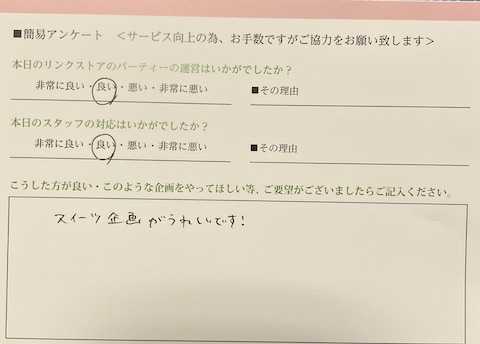 ■簡易アンケート ＜サービス向上の為、お手数ですがご協力をお願い致します＞
本日のリンクストアのパーティーの運営はいかがでしたか？
非常に良い・良い・悪い・非常に悪い ■その理由
本日のスタッフの対応はいかがでしたか？
非常に良い・良い・悪い・非常に悪い ■その理由
こうした方が良い・このような企画をやってほしい等、ご要望がございましたらご記入ください。
スイーツ企画がうれしいです！